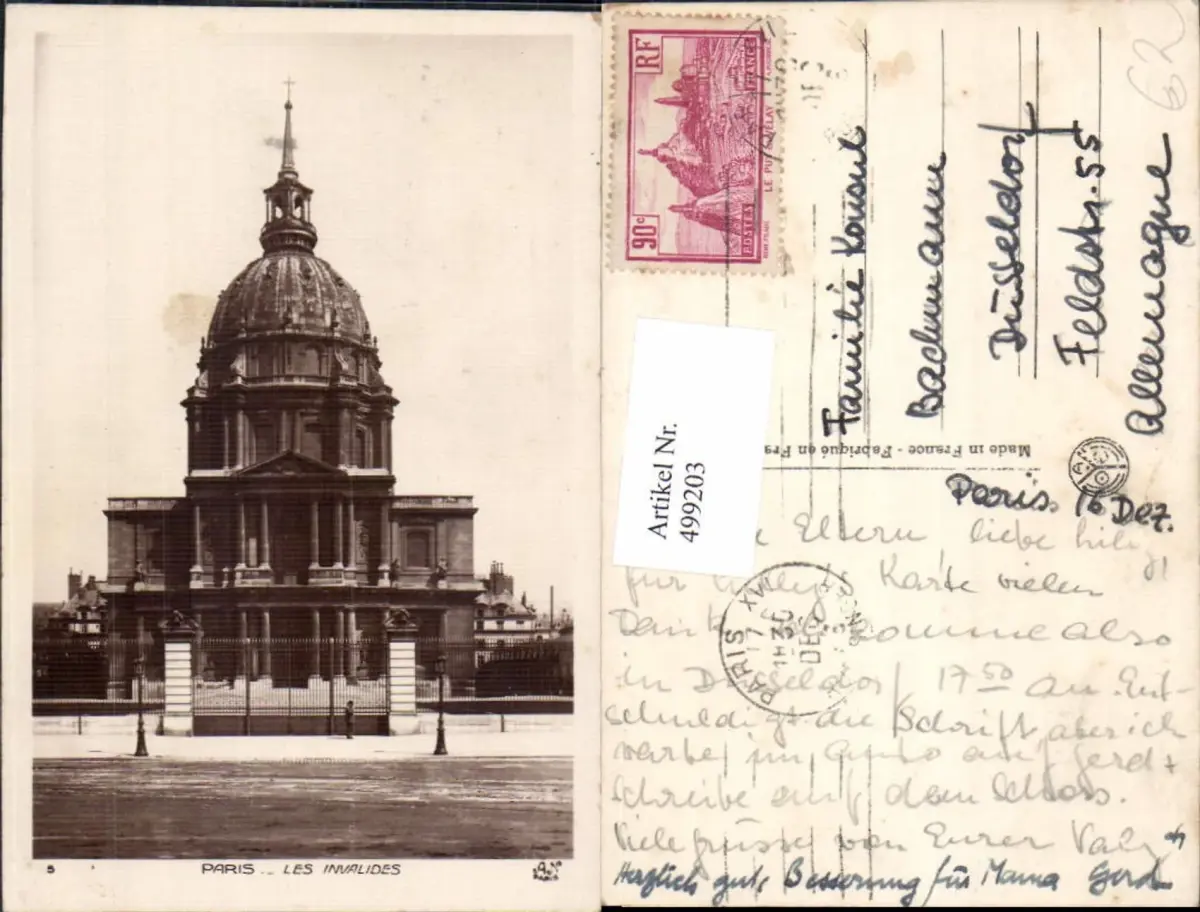 5
PARIS _ LES INVALIDES
A.N
PARIS
RF
90c
POSTES
FRANCE
LE PUY-EN-VELAY
Artikel Nr.
499203
62
Familie Konsul
Bachmann
Düsseldorf
Feldstr. 55
Allemagne
Made in France - Fabriqué en Fra
PARIS XVII
17
1H30
DEC
Paris 16 Dez.
Eltern, liebe
für Karte vielen
Dank komme also
in Düsseldorf 17 50 an. Ent-
schuldigt die Schrift, aber ich
warte im Auto auf Gerd +
schreibe auf dem Schoss.
Viele Grüsse von Eurer
Herzlich gute Besserung für Mama Gerd